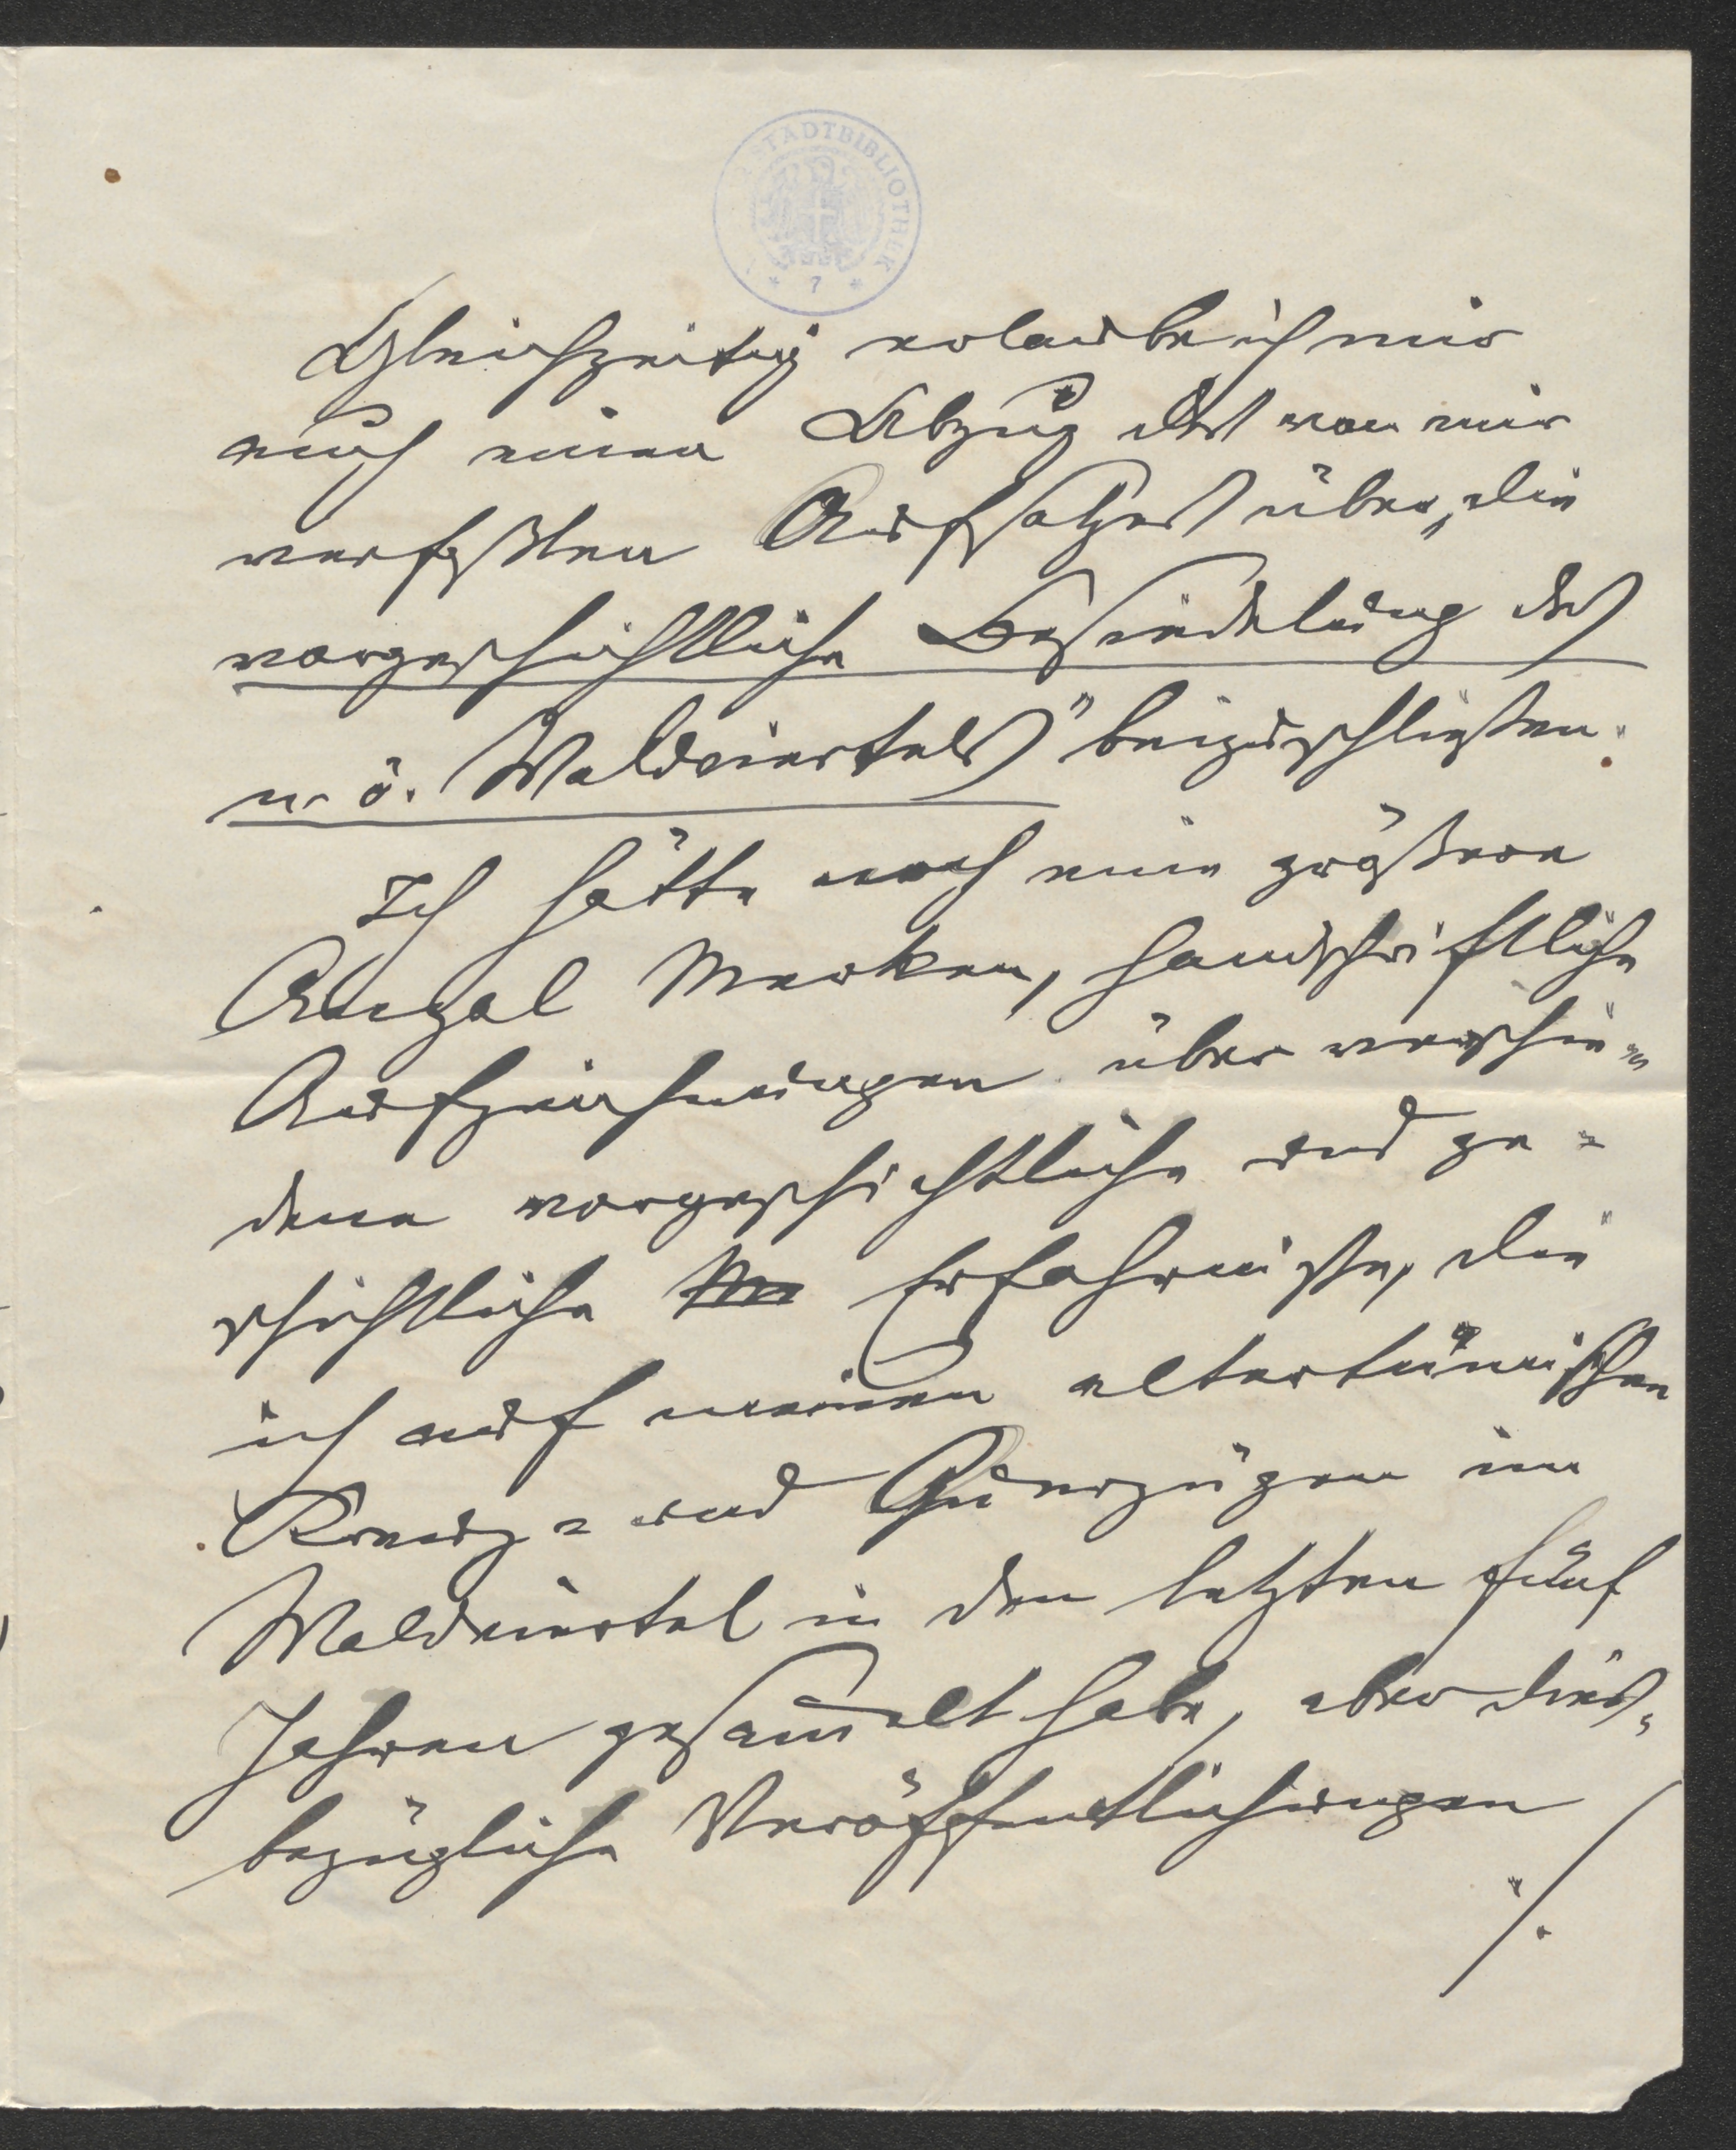 STADTBIBLIOTHEK
* 7 *
Gleichzeitig erlaube ich mir
auch einen Abzug des von mir
verfaßten Aufsatzes über „die
vorgeschichtliche Besiedelung des
n. ö. Waldviertels" beizuschließen.
Ich hätte noch eine größere
Anzal Merken, handschriftliche
Aufzeichnungen über verschie=
dene vorgeschichtliche und ge=
schichtliche Erfahrnisse, die
ich auf meinen altertümischen
Kreuz= und Querzügen im
Waldviertel in den letzten fünf
Jahren gesammelt habe, aber dies=
bezügliche Veröffentlichungen
./.